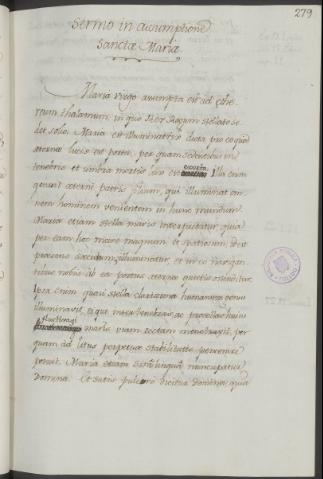 279
Sermo in assumptione
Sanctæ Mariæ
Maria virgo assumpta est ad æthe-
reum thalamum, in quo Rex Regum stellato se-
det solio. Maria est illuminatrix dicta pro eo quod
æternæ lucis est porta, per quam sedentibus in
tenebris et umbra mortis lux est exorta. Illa enim
genuit æterni patris filium, qui illuminat om-
nem hominem venientem in hunc mundum.
Maria etiam stella maris interpretatur quia
per eam hoc mare magnum et spatiosum id est
præsens sæculum illuminatur, et in eo navigan-
tibus nobis ab ea portus æternæ quietis ostenditur.
Ipsa enim quasi stella clarissima humanum genus
illuminavit, eique inter tenebras ac procellas huius
fluctivagi
maris viam rectam monstravit, per
quam ad litus perpetuæ stabilitatis pervenire
possit. Maria etiam Sira lingua nuncupatur
Domina. Et satis pulcre dicitur Domina, quia